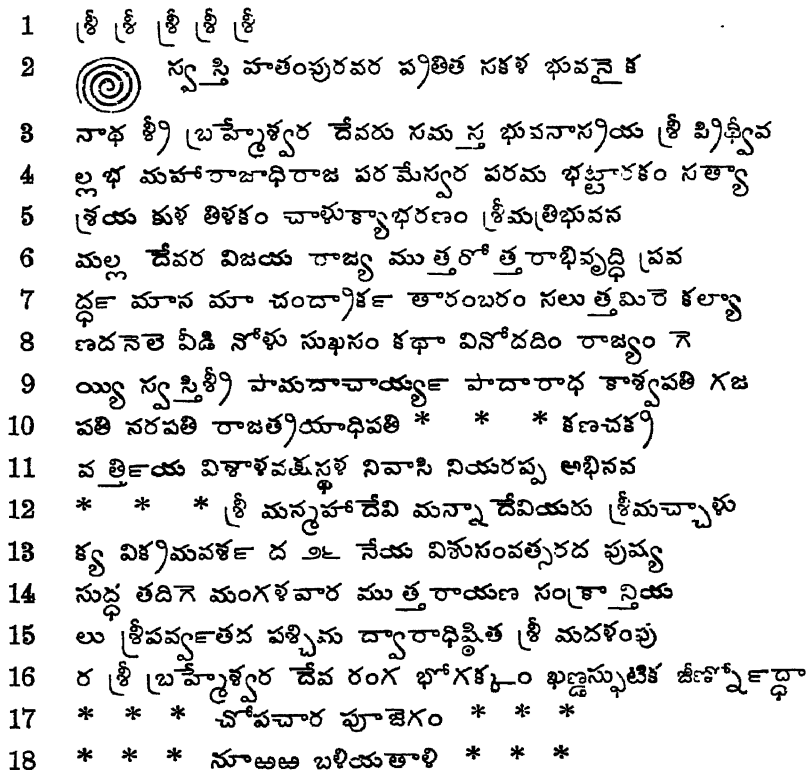 1 శ్రీ శ్రీ శ్రీ శ్రీ శ్రీ
2 స్వస్తి హతంపురవర ప్రతిత సకళ భువనైక
3 నాథ శ్రీ బ్రహ్మేశ్వర దేవరు సమస్త భువనాస్రయ శ్రీ ప్రిథ్వీవ
4 ల్లభ మహారాజాధిరాజ పరమేస్వర పరమ భట్టారకం సత్యా
5 శ్రయ కుళ తిళకం చాళుక్యాభరణం శ్రీమత్రిభువన
6 మల్ల దేవర విజయ రాజ్య ముత్తరోత్తరాభివృద్ధి ప్రవ
7 ద్ధ౯ మాన మా చంద్రాక౯ తారంబరం సలుత్తమిరె కల్యా
8 ణదనెలె వీడి నోళు సుఖసం కథా వినోదదిం రాజ్యం గె
9 య్యి స్వస్తిశ్రీ పామదాచాయ్య౯ పాదారాధ కాశ్వపతి గజ
10 పతి నరపతి రాజత్రయాధిపతి * * * కణచక్రి
11 వత్తి౯య విశాళవక్షస్థళ నివాసి నియరప్ప అభినవ
12 * * * శ్రీ మన్మహాదేవి మన్నాదేవియరు శ్రీమచ్చాళు
13 క్య విక్రమవళ౯ ద ౨౬ నేయ విశుసంవత్సరద పుష్య
14 సుద్ధ తదిగె మంగళవార ముత్తరాయణ సంక్రాన్తియ
15 లు శ్రీపవ్వ౯తద పశ్చిమ ద్వారాధిష్ఠిత శ్రీ మదళంపు
16 ర శ్రీ బ్రహ్మేశ్వర దేవ రంగ భోగక్కం ఖణ్డస్ఫుటిక జీణ్నో౯ద్ధా
17 * * * చోపచార పూజెగం * * *
18 * * * నూఱఱ బళియతాళి * * *